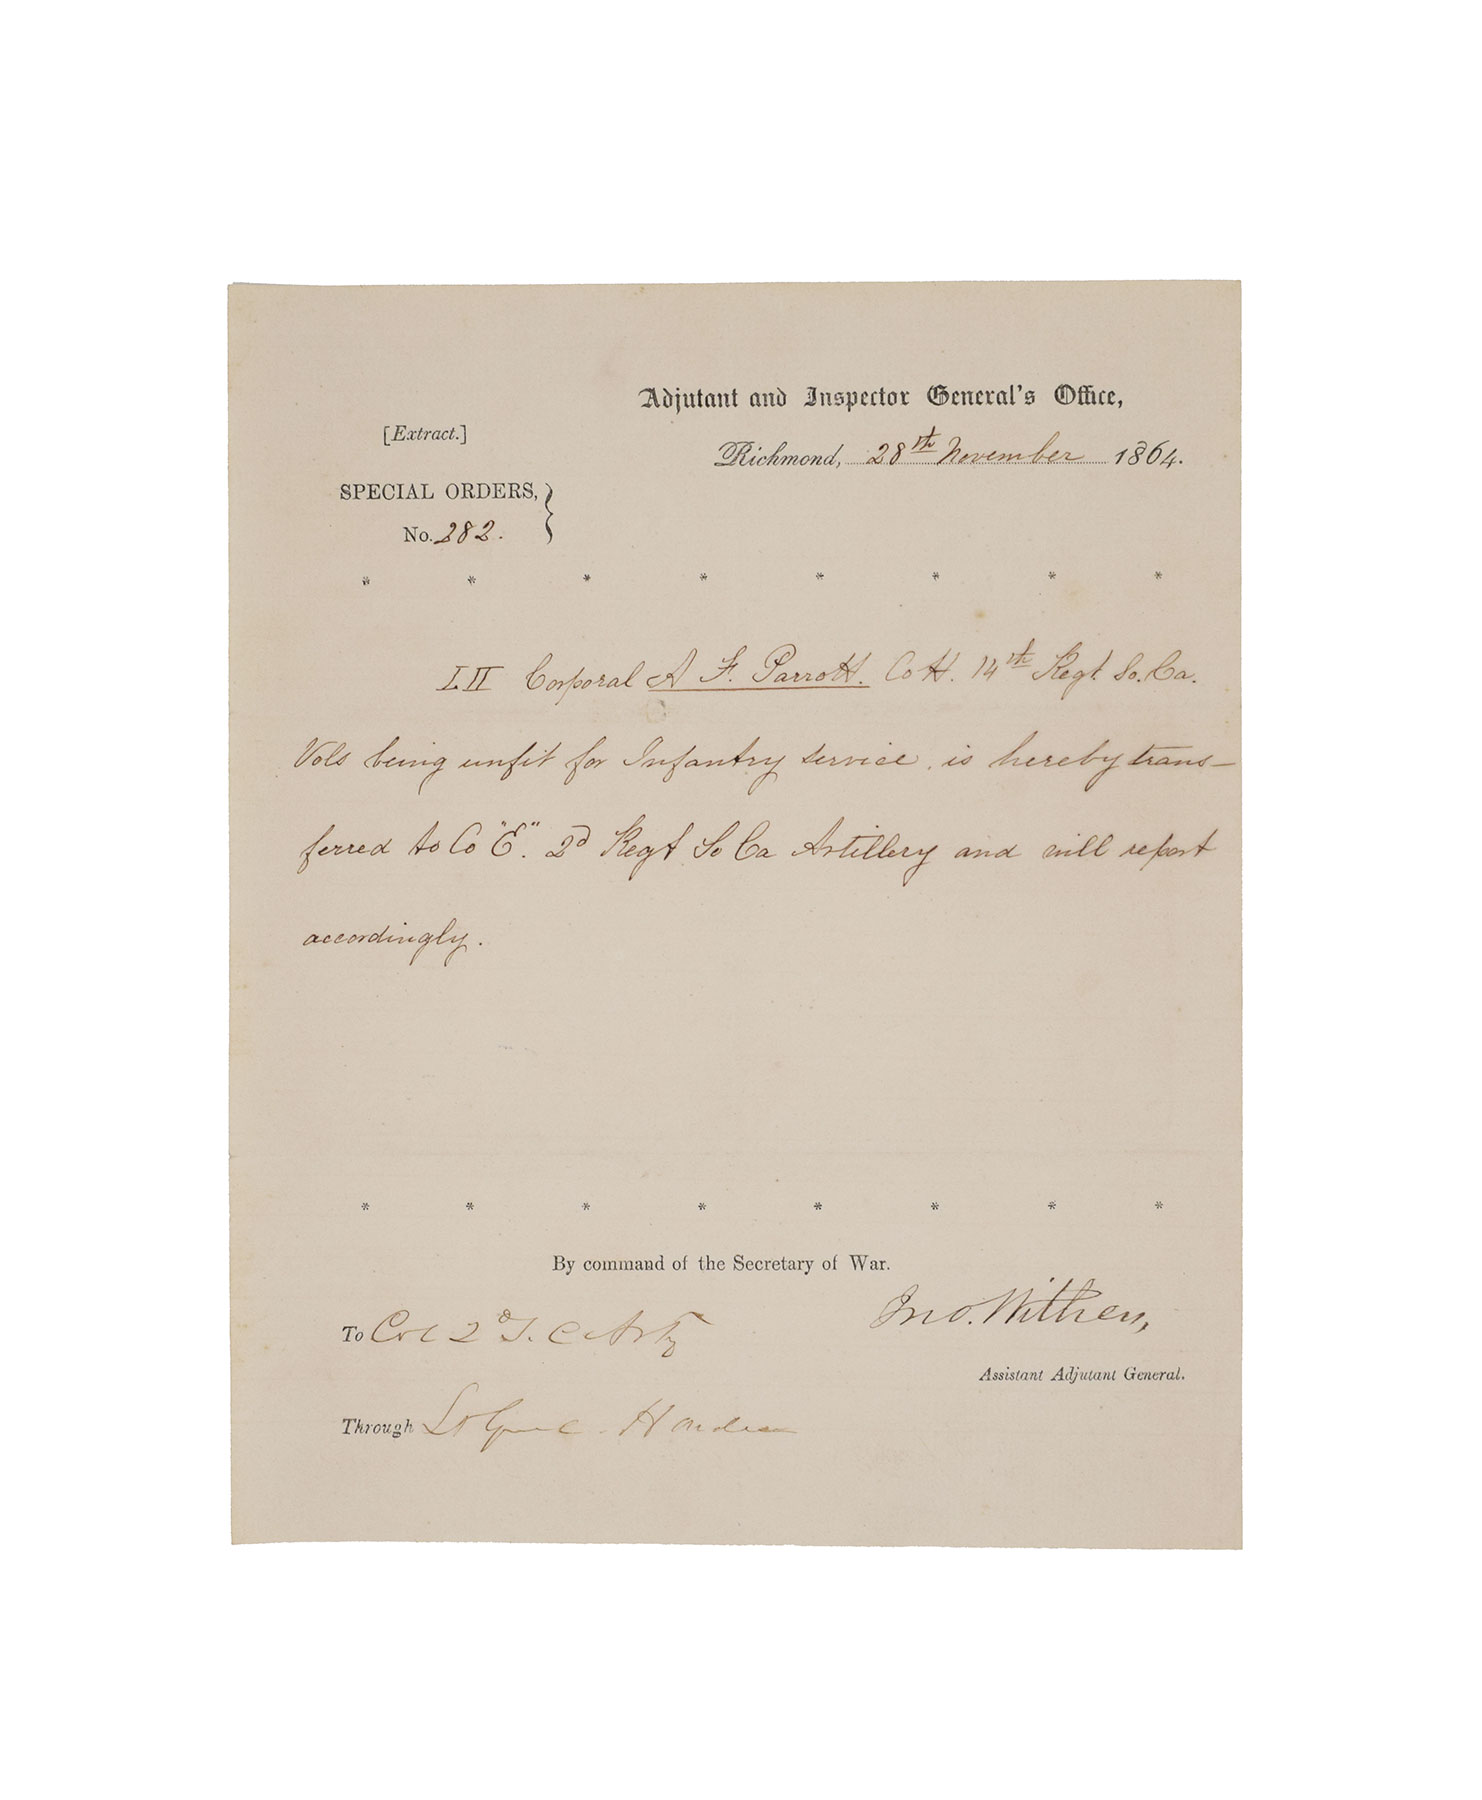 Adjutant and Inspector General's Office,
[Extract.]
Richmond, 28th November 1864.
SPECIAL ORDERS,
No. 282.
* * * * * * * *
LII Corporal A F. Parrott. Co H. 14th Regt. So. Ca.
Vols being unfit for Infantry service, is hereby trans-
ferred to Co "E". 2d Regt So Ca Artillery and will report
accordingly.
* * * * * * * *
By command of the Secretary of War.
Jno. Withers,
To Col 2d S. C Arty
Assistant Adjutant General.
Through Lt Genl Hardee